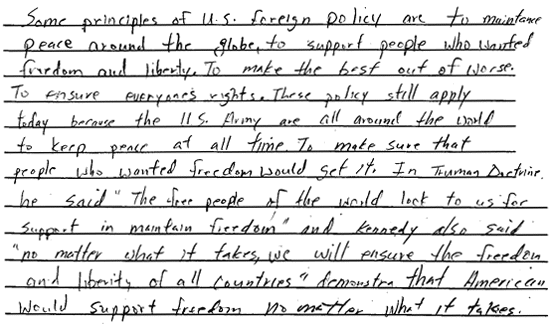 Some principles of U.S. foreign policy are to maintance
peace around the globe, to support people who wanted
freedom and liberty. To make the best out of worse.
To ensure everyone's rights. These policy still apply
today because the U.S. Army are all around the world
to keep peace at all time. To make sure that
people who wanted freedom would get it. In Truman Doctrine,
he said "The free people of the world look to us for
support in maintain freedom" and Kennedy also said
"no matter what it takes, we will ensure the freedom
and liberity of all countries" demonstra that American
would support freedom no matter what it takes.